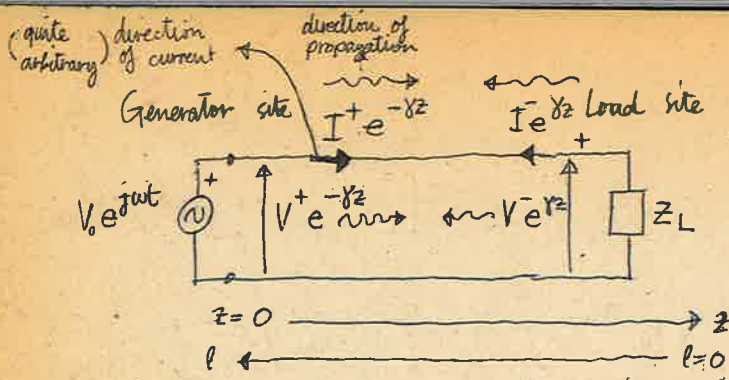 (quite arbitrary) direction of current
direction of propagation
Generator site
I⁺e^{-γz}
I⁻e^{γz}
Load site
+
+
V₀e^{jωt}
V⁺e^{-γz}
V⁻e^{γz}
Z_L
z=0
z
l
l=0